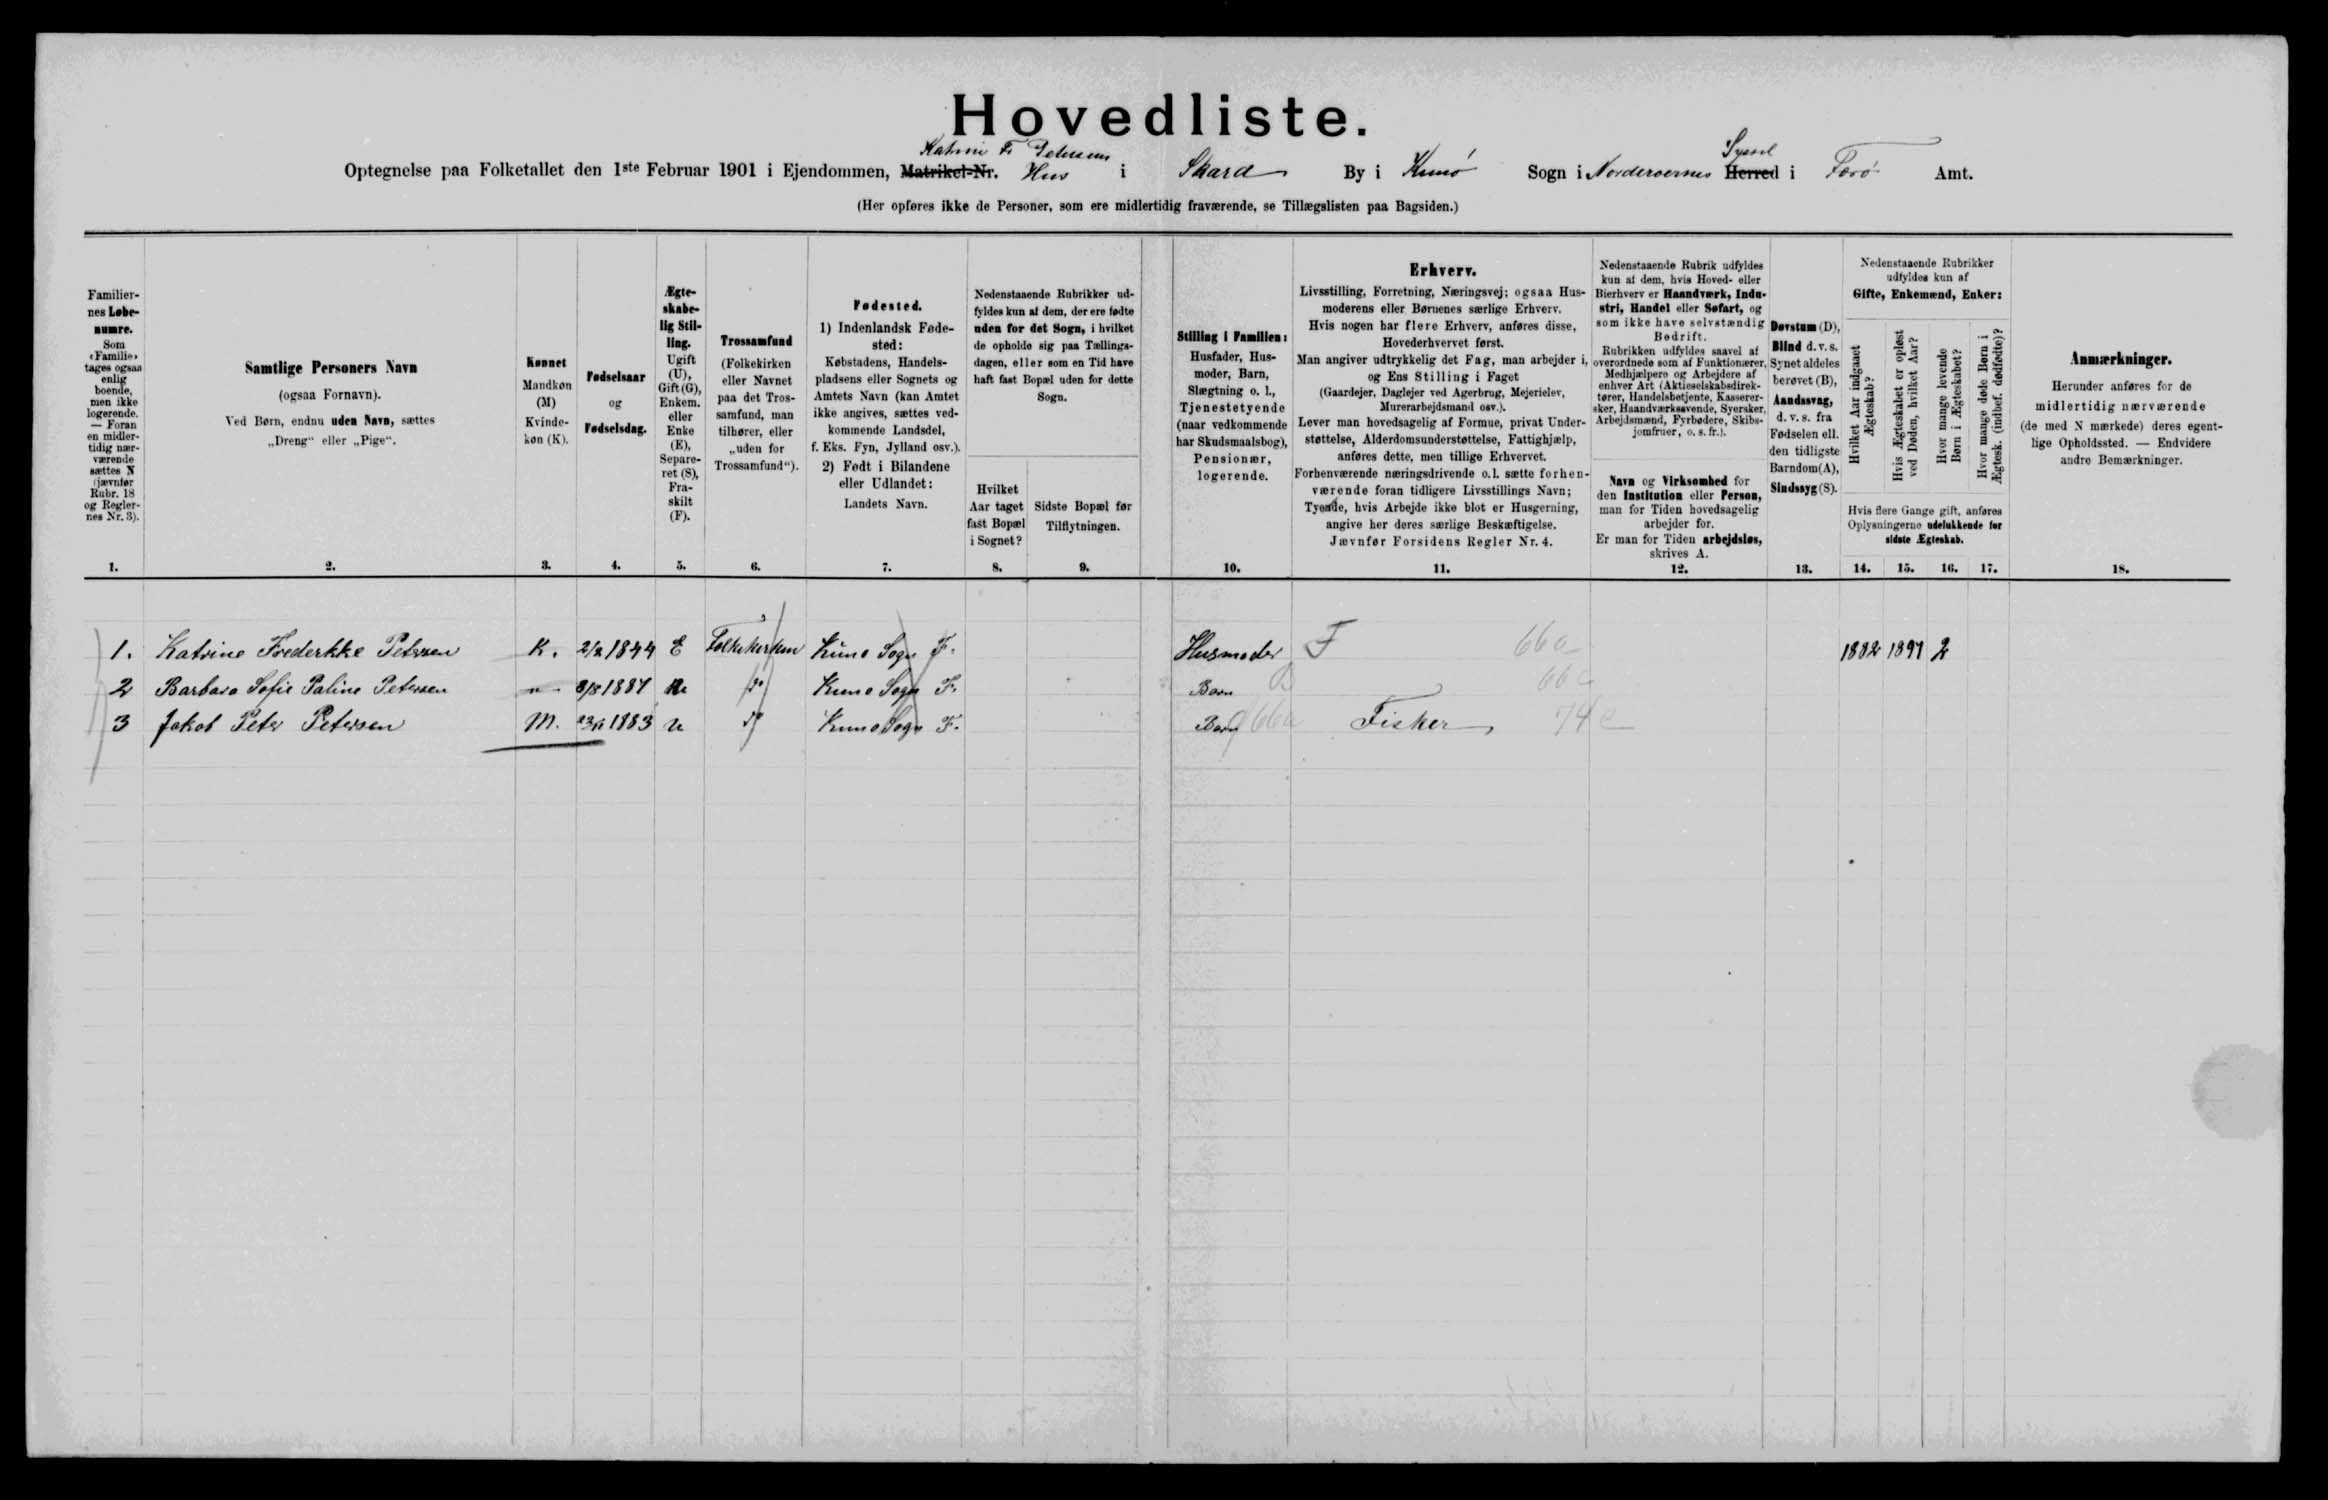 Hovedliste.
Katrine F. Petersens
Optegnelse paa Folketallet den 1ste Februar 1901 i Ejendommen, Matrikel-Nr. Hus i Skard By i Kunø Sogn i Norderoernes Herred Syssel i Færø Amt.
(Her opføres ikke de Personer, som ere midlertidig fraværende, se Tillægslisten paa Bagsiden.)
Familier-
nes Løbe-
numre.
Som
«Familie»
tages ogsaa
enlig
boende,
men ikke
logerende.
— Foran
en midler-
tidig nær-
værende
sættes N
(jævnfør
Rubr. 18
og Regler-
nes Nr. 3).
1.
Samtlige Personers Navn
(ogsaa Fornavn).
Ved Børn, endnu uden Navn, sættes
„Dreng“ eller „Pige“.
2.
Kønnet
Mandkøn
(M)
Kvinde-
køn (K).
3.
Fødselsaar
og
Fødselsdag.
4.
Ægte-
skabe-
lig Stil-
ling.
Ugift
(U),
Gift (G),
Enkem.
eller
Enke
(E),
Separe-
ret (S),
Fra-
skilt
(F).
5.
Trossamfund
(Folkekirken
eller Navnet
paa det Tros-
samfund, man
tilhører, eller
„uden for
Trossamfund“).
6.
Fødested.
1) Indenlandsk Føde-
sted:
Købstadens, Handels-
pladsens eller Sognets og
Amtets Navn (kan Amtet
ikke angives, sættes ved-
kommende Landsdel,
f. Eks. Fyn, Jylland osv.).
2) Født i Bilandene
eller Udlandet:
Landets Navn.
7.
Nedenstaaende Rubrikker ud-
fyldes kun af dem, der ere fødte
uden for det Sogn, i hvilket
de opholde sig paa Tællings-
dagen, eller som en Tid have
haft fast Bopæl uden for dette
Sogn.
Hvilket
Aar taget
fast Bopæl
i Sognet?
8.
Sidste Bopæl før
Tilflytningen.
9.
Stilling i Familien:
Husfader, Hus-
moder, Barn,
Slægtning o. l.,
Tjenestetyende
(naar vedkommende
har Skudsmaalsbog),
Pensionær,
logerende.
10.
Erhverv.
Livsstilling, Forretning, Næringsvej; ogsaa Hus-
moderens eller Børnenes særlige Erhverv.
Hvis nogen har flere Erhverv, anføres disse,
Hovederhvervet først.
Man angiver udtrykkelig det Fag, man arbejder i,
og Ens Stilling i Faget
(Gaardejer, Daglejer ved Agerbrug, Mejerielev,
Murerarbejdsmand osv.).
Lever man hovedsagelig af Formue, privat Under-
støttelse, Alderdomsunderstøttelse, Fattighjælp,
anføres dette, men tillige Erhvervet.
Forhenværende næringsdrivende o.l. sætte forhen-
værende foran tidligere Livsstillings Navn;
Tyende, hvis Arbejde ikke blot er Husgerning,
angive her deres særlige Beskæftigelse.
Jævnfør Forsidens Regler Nr. 4.
11.
Nedenstaaende Rubrik udfyldes
kun af dem, hvis Hoved- eller
Bierhverv er Haandværk, Indu-
stri, Handel eller Søfart, og
som ikke have selvstændig
Bedrift.
Rubrikken udfyldes saavel af
overordnede som af Funktionærer,
Medhjælpere og Arbejdere af
enhver Art (Aktieselskabsdirek-
tører, Handelsbetjente, Kasserer-
sker, Haandværkssvende, Syersker,
Arbejdsmænd, Fyrbødere, Skibs-
jomfruer, o. s. fr.).
Navn og Virksomhed for
den Institution eller Person,
man for Tiden hovedsagelig
arbejder for.
Er man for Tiden arbejdsløs,
skrives A.
12.
Døvstum (D),
Blind d. v. s.
Synet aldeles
berøvet (B),
Aandssvag,
d. v. s. fra
Fødselen ell.
den tidligste
Barndom (A),
Sindssyg (S).
13.
Nedenstaaende Rubrikker
udfyldes kun af
Gifte, Enkemænd, Enker:
Hvilket Aar indgaaet
Ægteskab?
Hvis Ægteskabet er opløst
ved Døden, hvilket Aar?
Hvor mange levende
Børn i Ægteskabet?
Hvor mange døde Børn i
Ægtesk. (indbef. dødfødte)?
Hvis flere Gange gift, anføres
Oplysningerne udelukkende for
sidste Ægteskab.
14. 15. 16. 17.
Anmærkninger.
Herunder anføres for de
midlertidig nærværende
(de med N mærkede) deres egent-
lige Opholdssted. — Endvidere
andre Bemærkninger.
18.
1. Katrine Frederkke Petersen K. 2/2 1844 E Folkekirken Kuno Sogn F. Husmoder F 66a 1882 1897 2
2 Barbara Sofie Paline Petersen 8/5 1887 U do Kuno Sogn F. Barn B 66c
3 Jakob Peter Petersen M. 1883 U do Kuno Sogn F. Barn 66a Fisker 74c